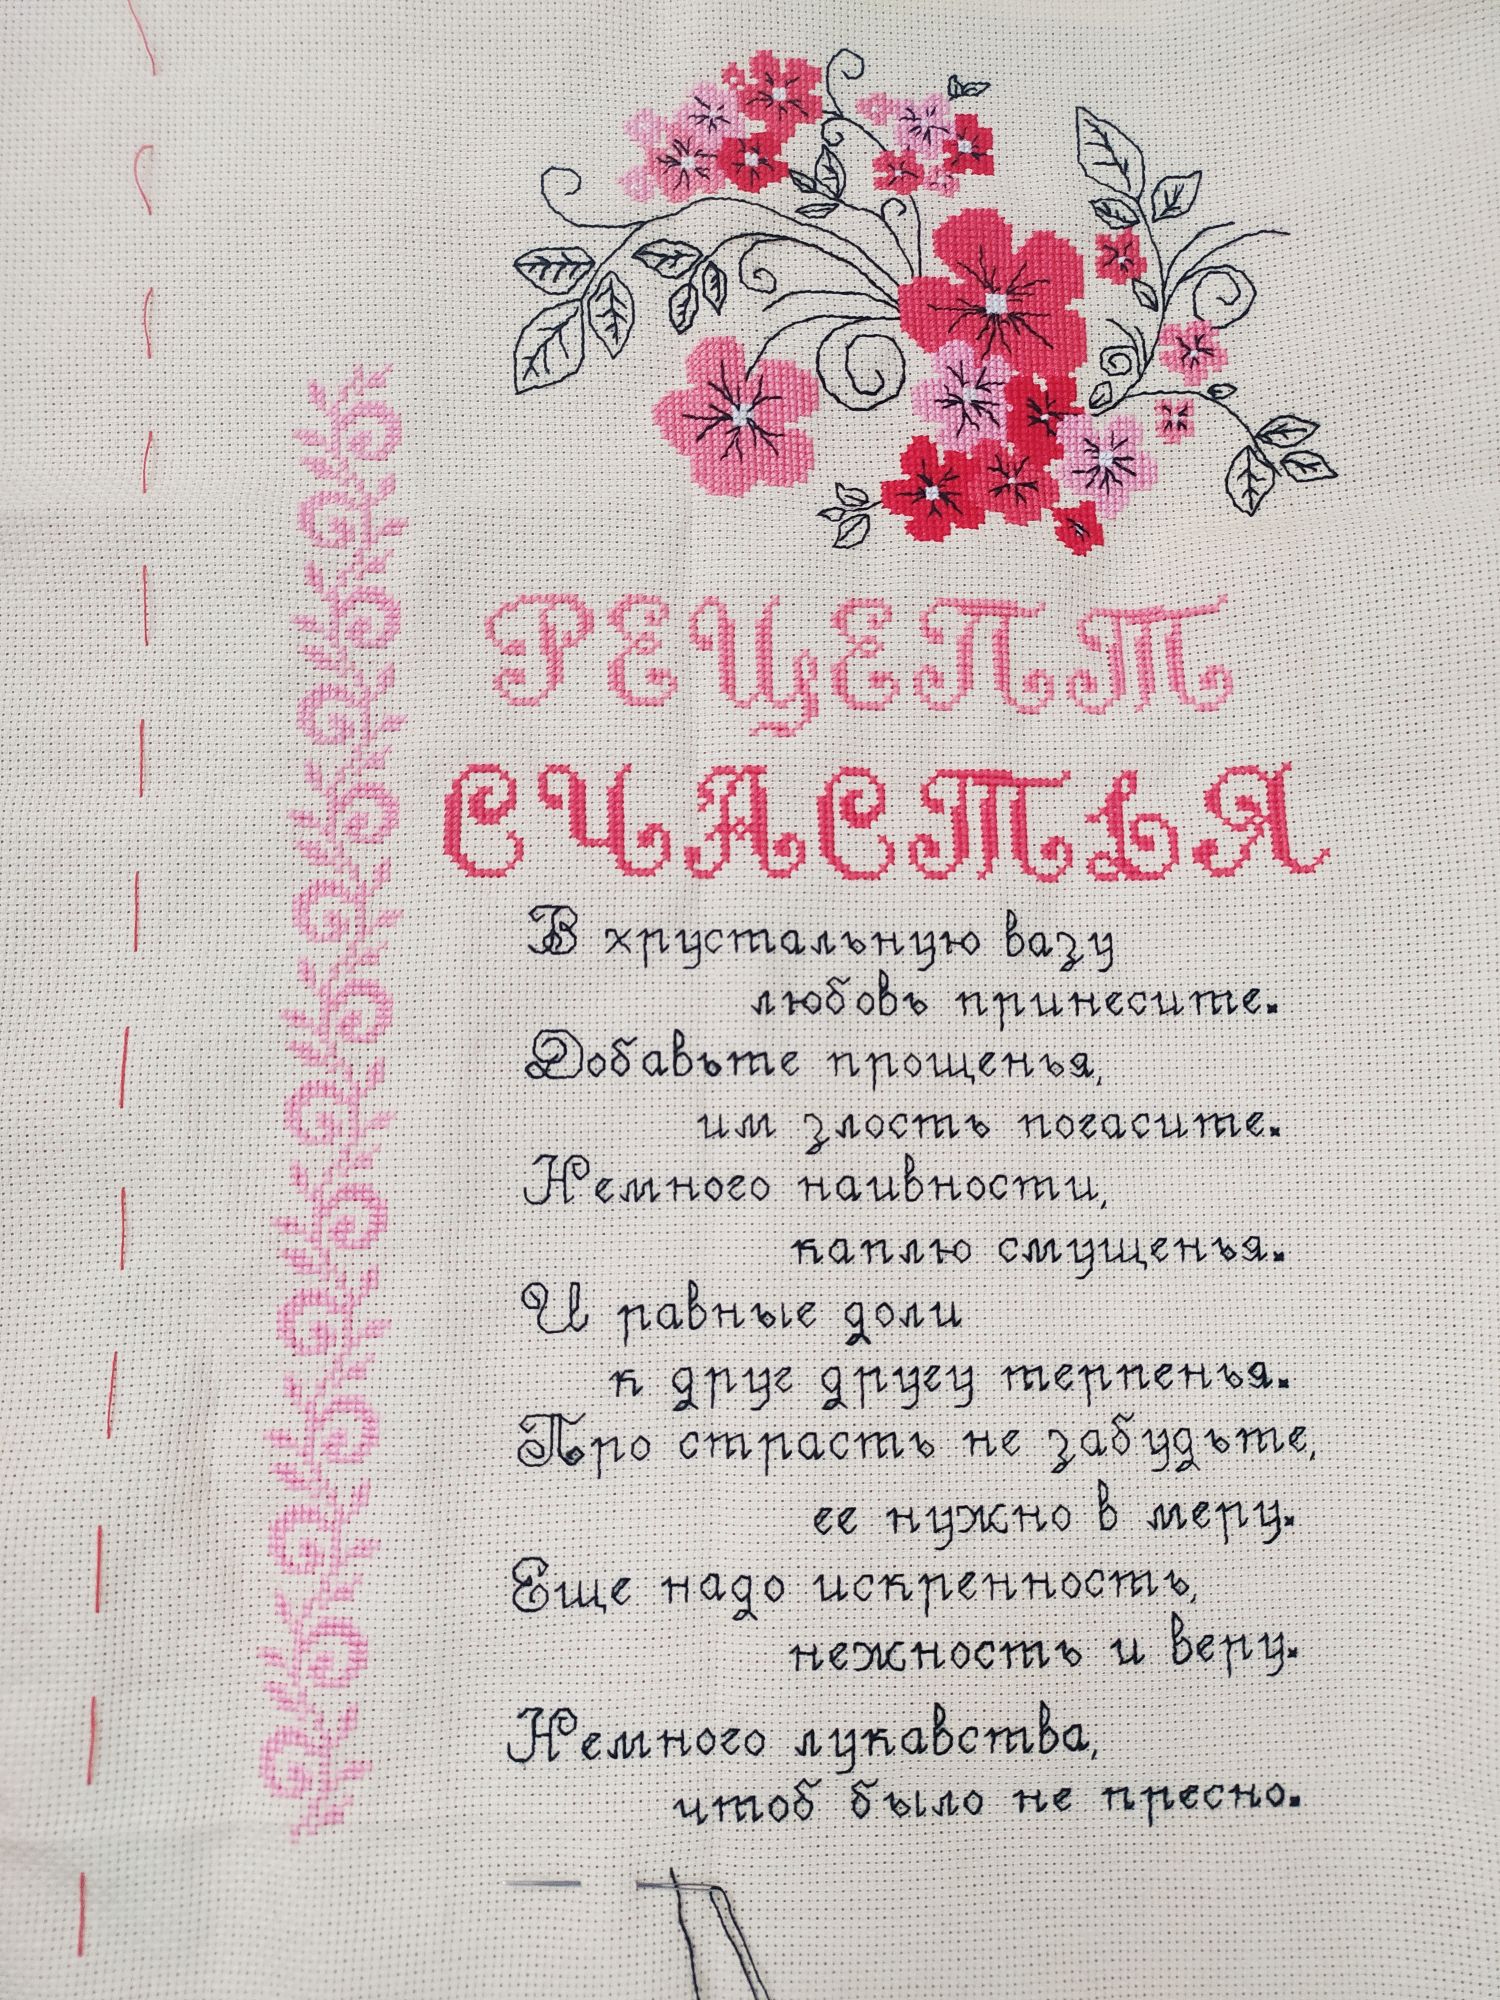 РЕЦЕПТ
СЧАСТЬЯ
В хрустальную вазу
любовь принесите.
Добавьте прощенья,
им злость погасите.
Немного наивности,
каплю смущенья.
И равные доли
к друг другу терпенья.
Про страсть не забудьте,
ее нужно в меру.
Еще надо искренность,
нежность и веру.
Немного лукавства,
чтоб было не пресно.